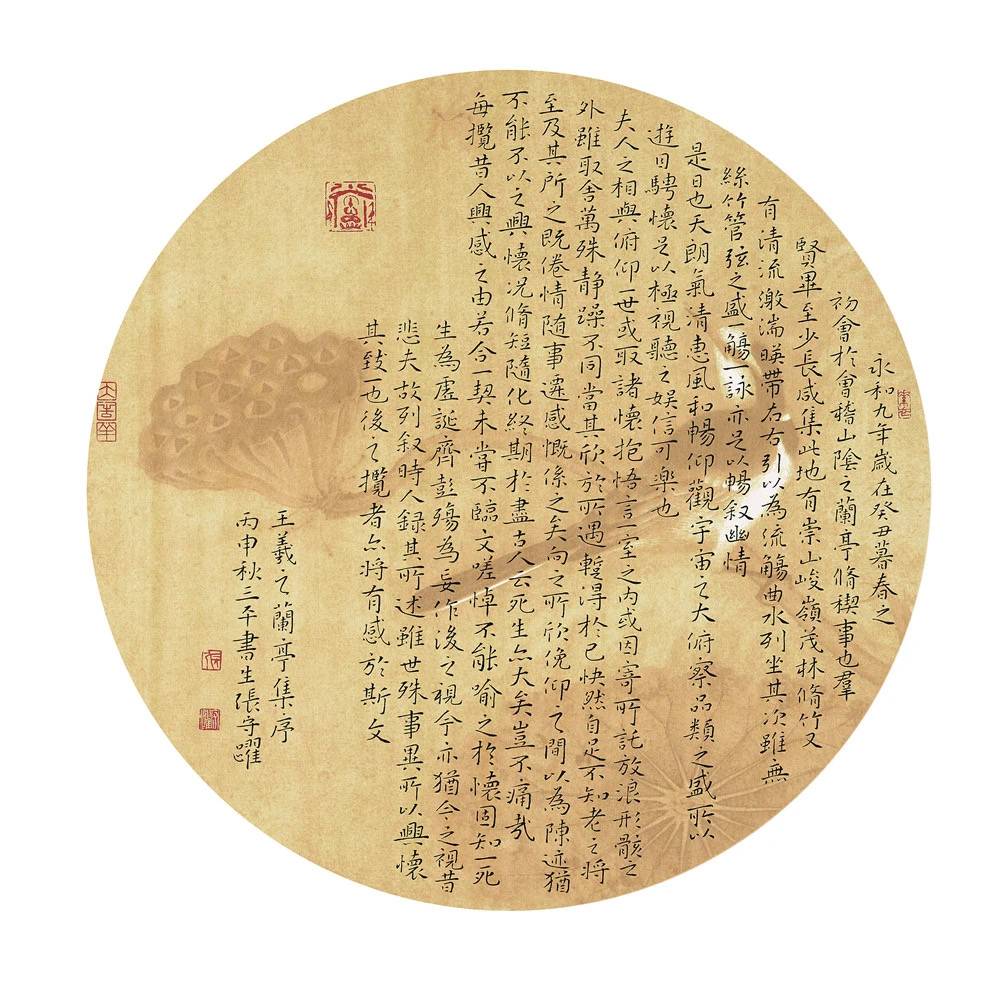 永和九年歲在癸丑暮春之
初會於會稽山陰之蘭亭脩稧事也羣
賢畢至少長咸集此地有崇山峻嶺茂林脩竹又
有清流激湍暎帶左右引以為流觴曲水列坐其次雖無
絲竹管弦之盛一觴一詠亦足以暢叙幽情
是日也天朗氣清惠風和暢仰觀宇宙之大俯察品類之盛所以
遊目騁懷足以極視聽之娛信可樂也
夫人之相與俯仰一世或取諸懷抱悟言一室之內或因寄所託放浪形骸之
外雖取舍萬殊静躁不同當其欣於所遇蹔得於己快然自足不知老之將
至及其所之既倦情随事遷感慨係之矣向之所欣俛仰之間以為陳迹猶
不能不以之興懷况脩短隨化終期於盡古人云死生亦大矣豈不痛哉
每攬昔人興感之由若合一契未嘗不臨文嗟悼不能喻之於懷固知一死
生為虛誕齊彭殤為妄作後之視今亦猶今之視昔
悲夫故列叙時人録其所述雖世殊事異所以興懷
其致一也後之攬者亦將有感於斯文
王羲之蘭亭集序
丙申秋三平書生張守躍